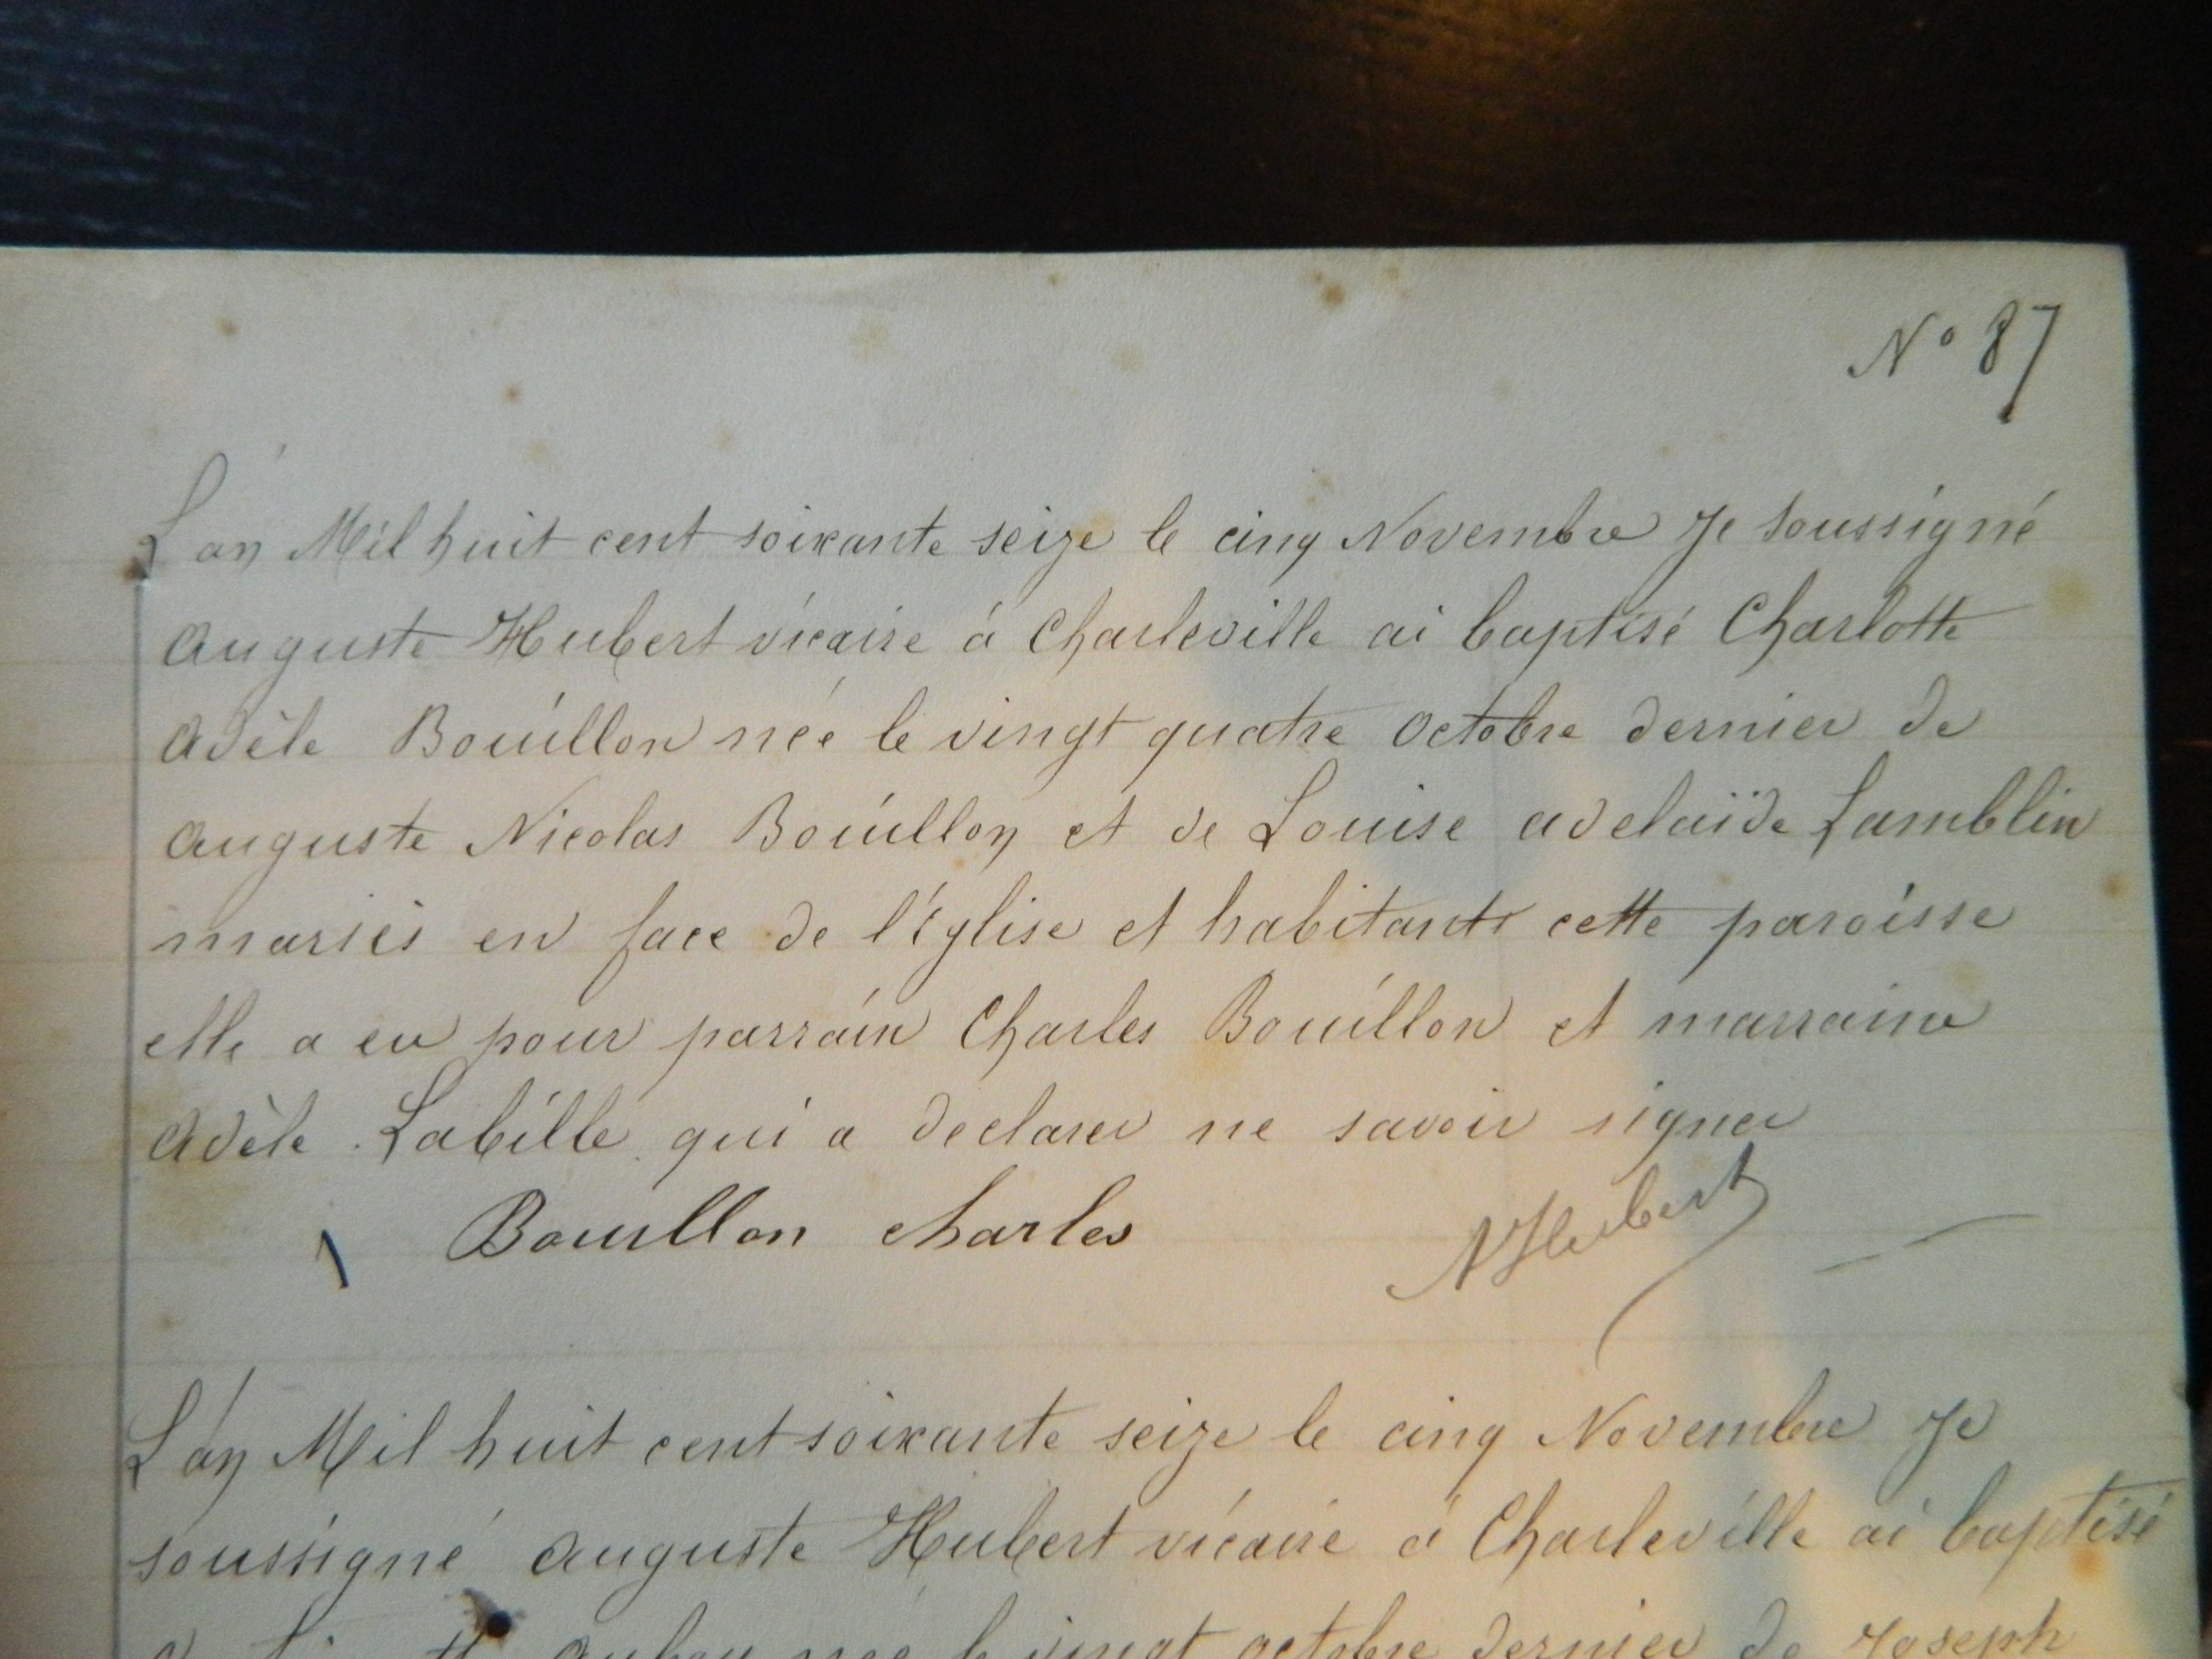 N° 87
L'an Mil huit cent soixante seize le cinq Novembre Je soussigné
Auguste Hubert vicaire à Charleville ai baptisé Charlotte
Adèle Bouillon née le vingt quatre Octobre dernier de
Auguste Nicolas Bouillon et de Louise adelaïde Lamblin
mariés en face de l'église et habitants cette paroisse
elle a eu pour parrain Charles Bouillon et marraine
Adèle Labille qui a declarer ne savoir signer
Bouillon charles
AHubert
L'an Mil huit cent soixante seize le cinq Novembre Je
soussigné Auguste Hubert vicaire à Charleville ai baptisé
née le vingt octobre dernier de Joseph